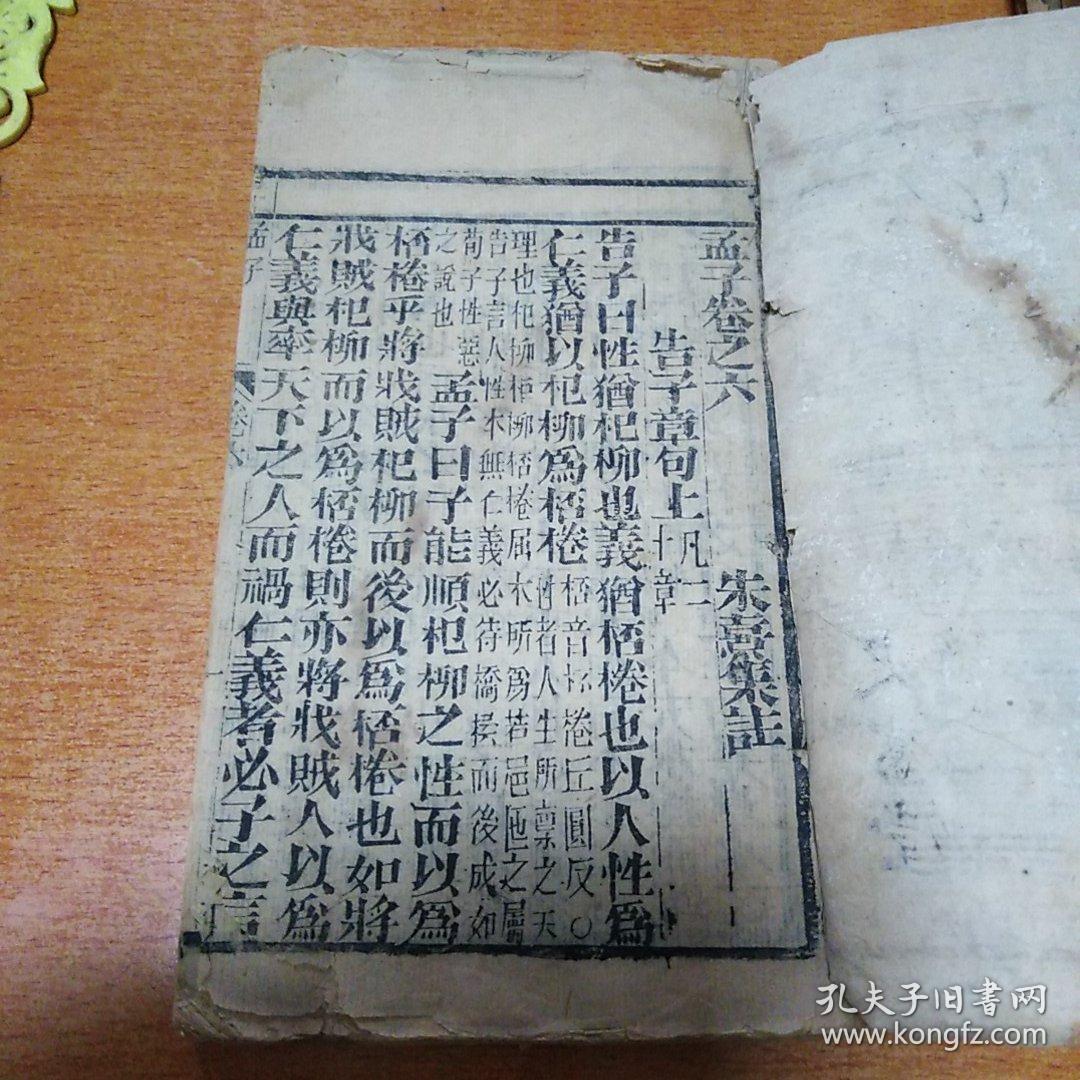 孟子卷之六 朱熹集註
告子章句上 凡二十章
告子曰性猶杞柳也義猶桮棬也以人性爲
仁義猶以杞柳爲桮棬 桮音杯棬丘圓反○性者人生所稟之天
理也杞柳柜柳桮棬屈木所爲若卮匜之屬
告子言人性本無仁義必待橋揉而後成如
荀子性惡之說也 孟子曰子能順杞柳之性而以爲
桮棬乎將戕賊杞柳而後以爲桮棬也如將
戕賊杞柳而以爲桮棬則亦將戕賊人以爲
仁義與率天下之人而禍仁義者必子之言
孟子 卷六
孔夫子旧书网
www.kongfz.com